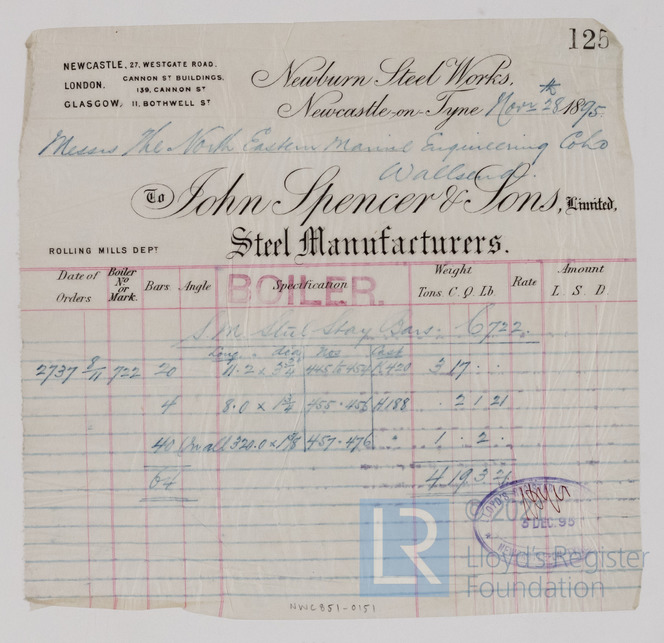 125
NEWCASTLE, 27, WESTGATE ROAD.
LONDON. CANNON ST BUILDINGS, 139, CANNON ST
GLASGOW, 11, BOTHWELL ST
Newburn Steel Works,
Newcastle-on-Tyne Novr 28th 1895
Messrs The North Eastern Marine Engineering Co Ld
Wallsend.
To John Spencer & Sons, Limited,
ROLLING MILLS DEPT
Steel Manufacturers.
Date of Orders Boiler No or Mark. Bars Angle Specification Weight Tons. C. Q. Lb. Rate Amount L. S. D
BOILER.
S. M. Steel Stay Bars: 6722.
Long . dia Nos Cast
2737 8/11 722 20 11.2 x 435 to 454 420 3 17 . .
4 8.0 x 1 3/4 455 . 456 H188 . 2 1 21
40 in all 320.0 x 457 . 476 " 1 . 2 .
64 4 19 3 21
LLOYD'S
3 DEC. 95
© 20
LR
Lloyd's Register
Foundation
NWC851-0151